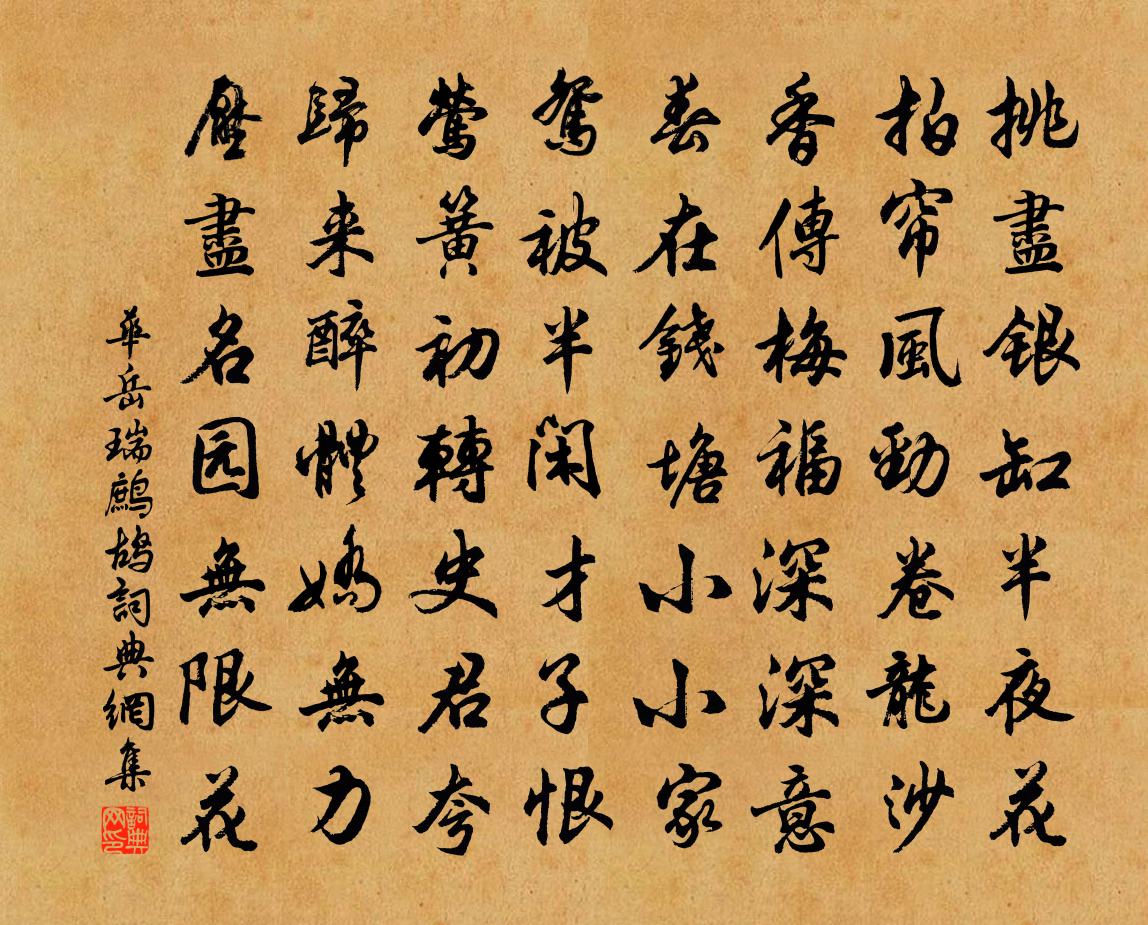 挑盡銀缸半夜花
拍帘風勁卷龍沙
香傳梅福深深意
春在錢塘小小家
鴛被半閑才子恨
鶯簧初轉史君夸
歸来醉體嬌無力
壓盡名园無限花
華岳瑞鷓鴣詞典網集
詞典网印